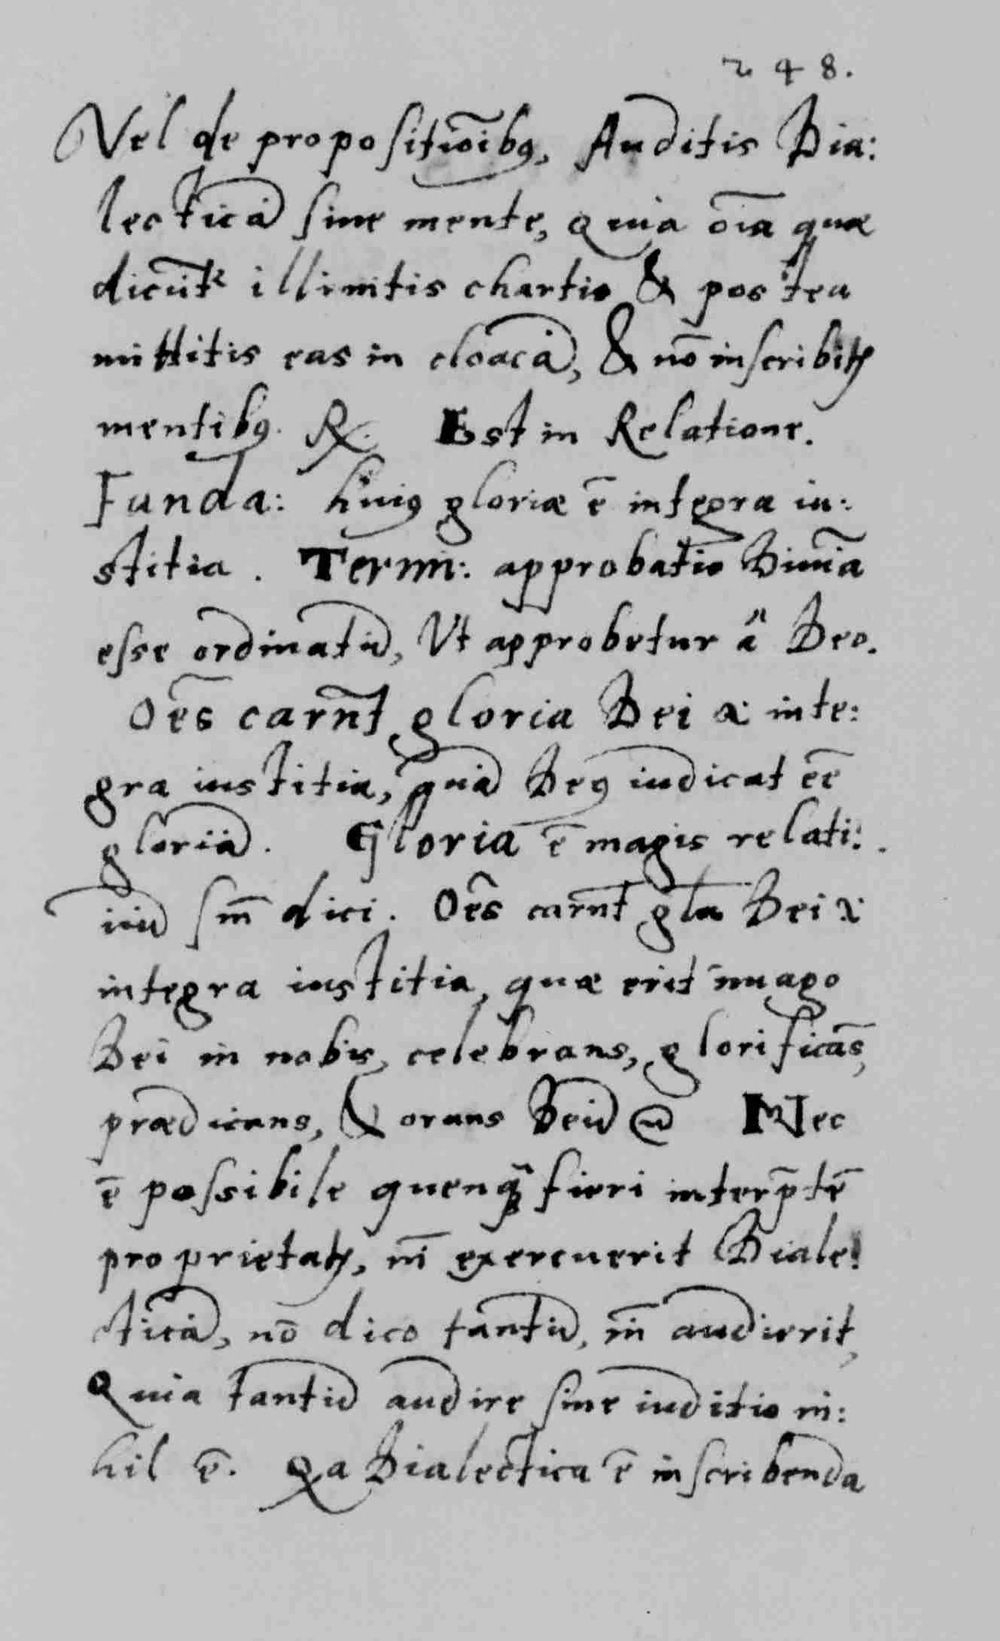 248.
Vel de propositiōibꝰ, Auditis Dia:
lecticā sine mente, quia oīa quæ
dicūtʳ illinitis chartis & postea
mittitis eas in cloacā, & nō inscribitꝭ
mentibꝰ. ℞. Est in Relatione.
Funda: huiꝰ gloriæ ē integra iu:
stitia. Termi: approbatio Diuīa
esse ordinatū, Vt approbetur â Deo.
Oēs carēnt gloria Dei .i. inte:
gra iustitia, quā Deꝰ iudicat eē
gloriā. Gloria ē magis relati:
uū sm̄ dici. Oēs carēnt gl̄a Dei .i.
integra iustitia, quæ erit imago
Dei in nobis, celebrans, glorificās,
prædicans, & orans Deū Nec
ē possibile quenq̄ fieri interp̄tē
proprietatꝭ, nī exercuerit Diale:
cticā, nō dico tantū, nī audierit,
Quia tantū audire sine iuditio ni:
hil ē. Qa Dialectica ē inscribenda